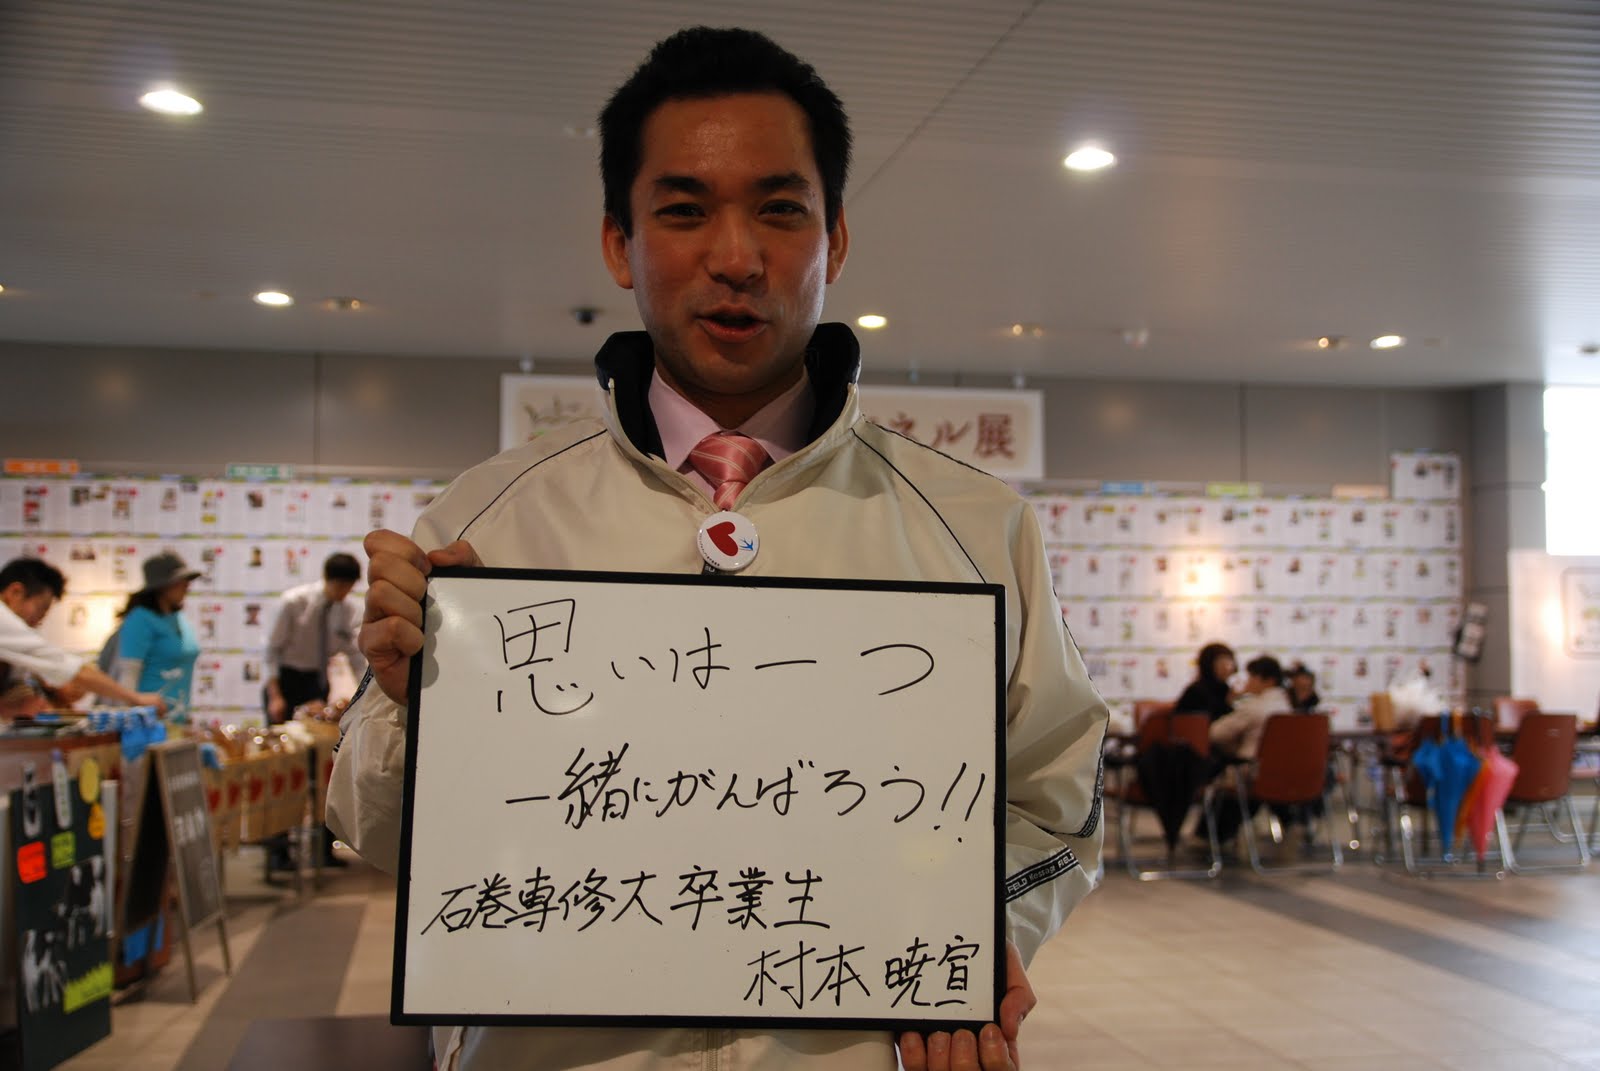 ネル展
思いは一つ
一緒にがんばろう!!
石巻専修大卒業生
村本 暁宣